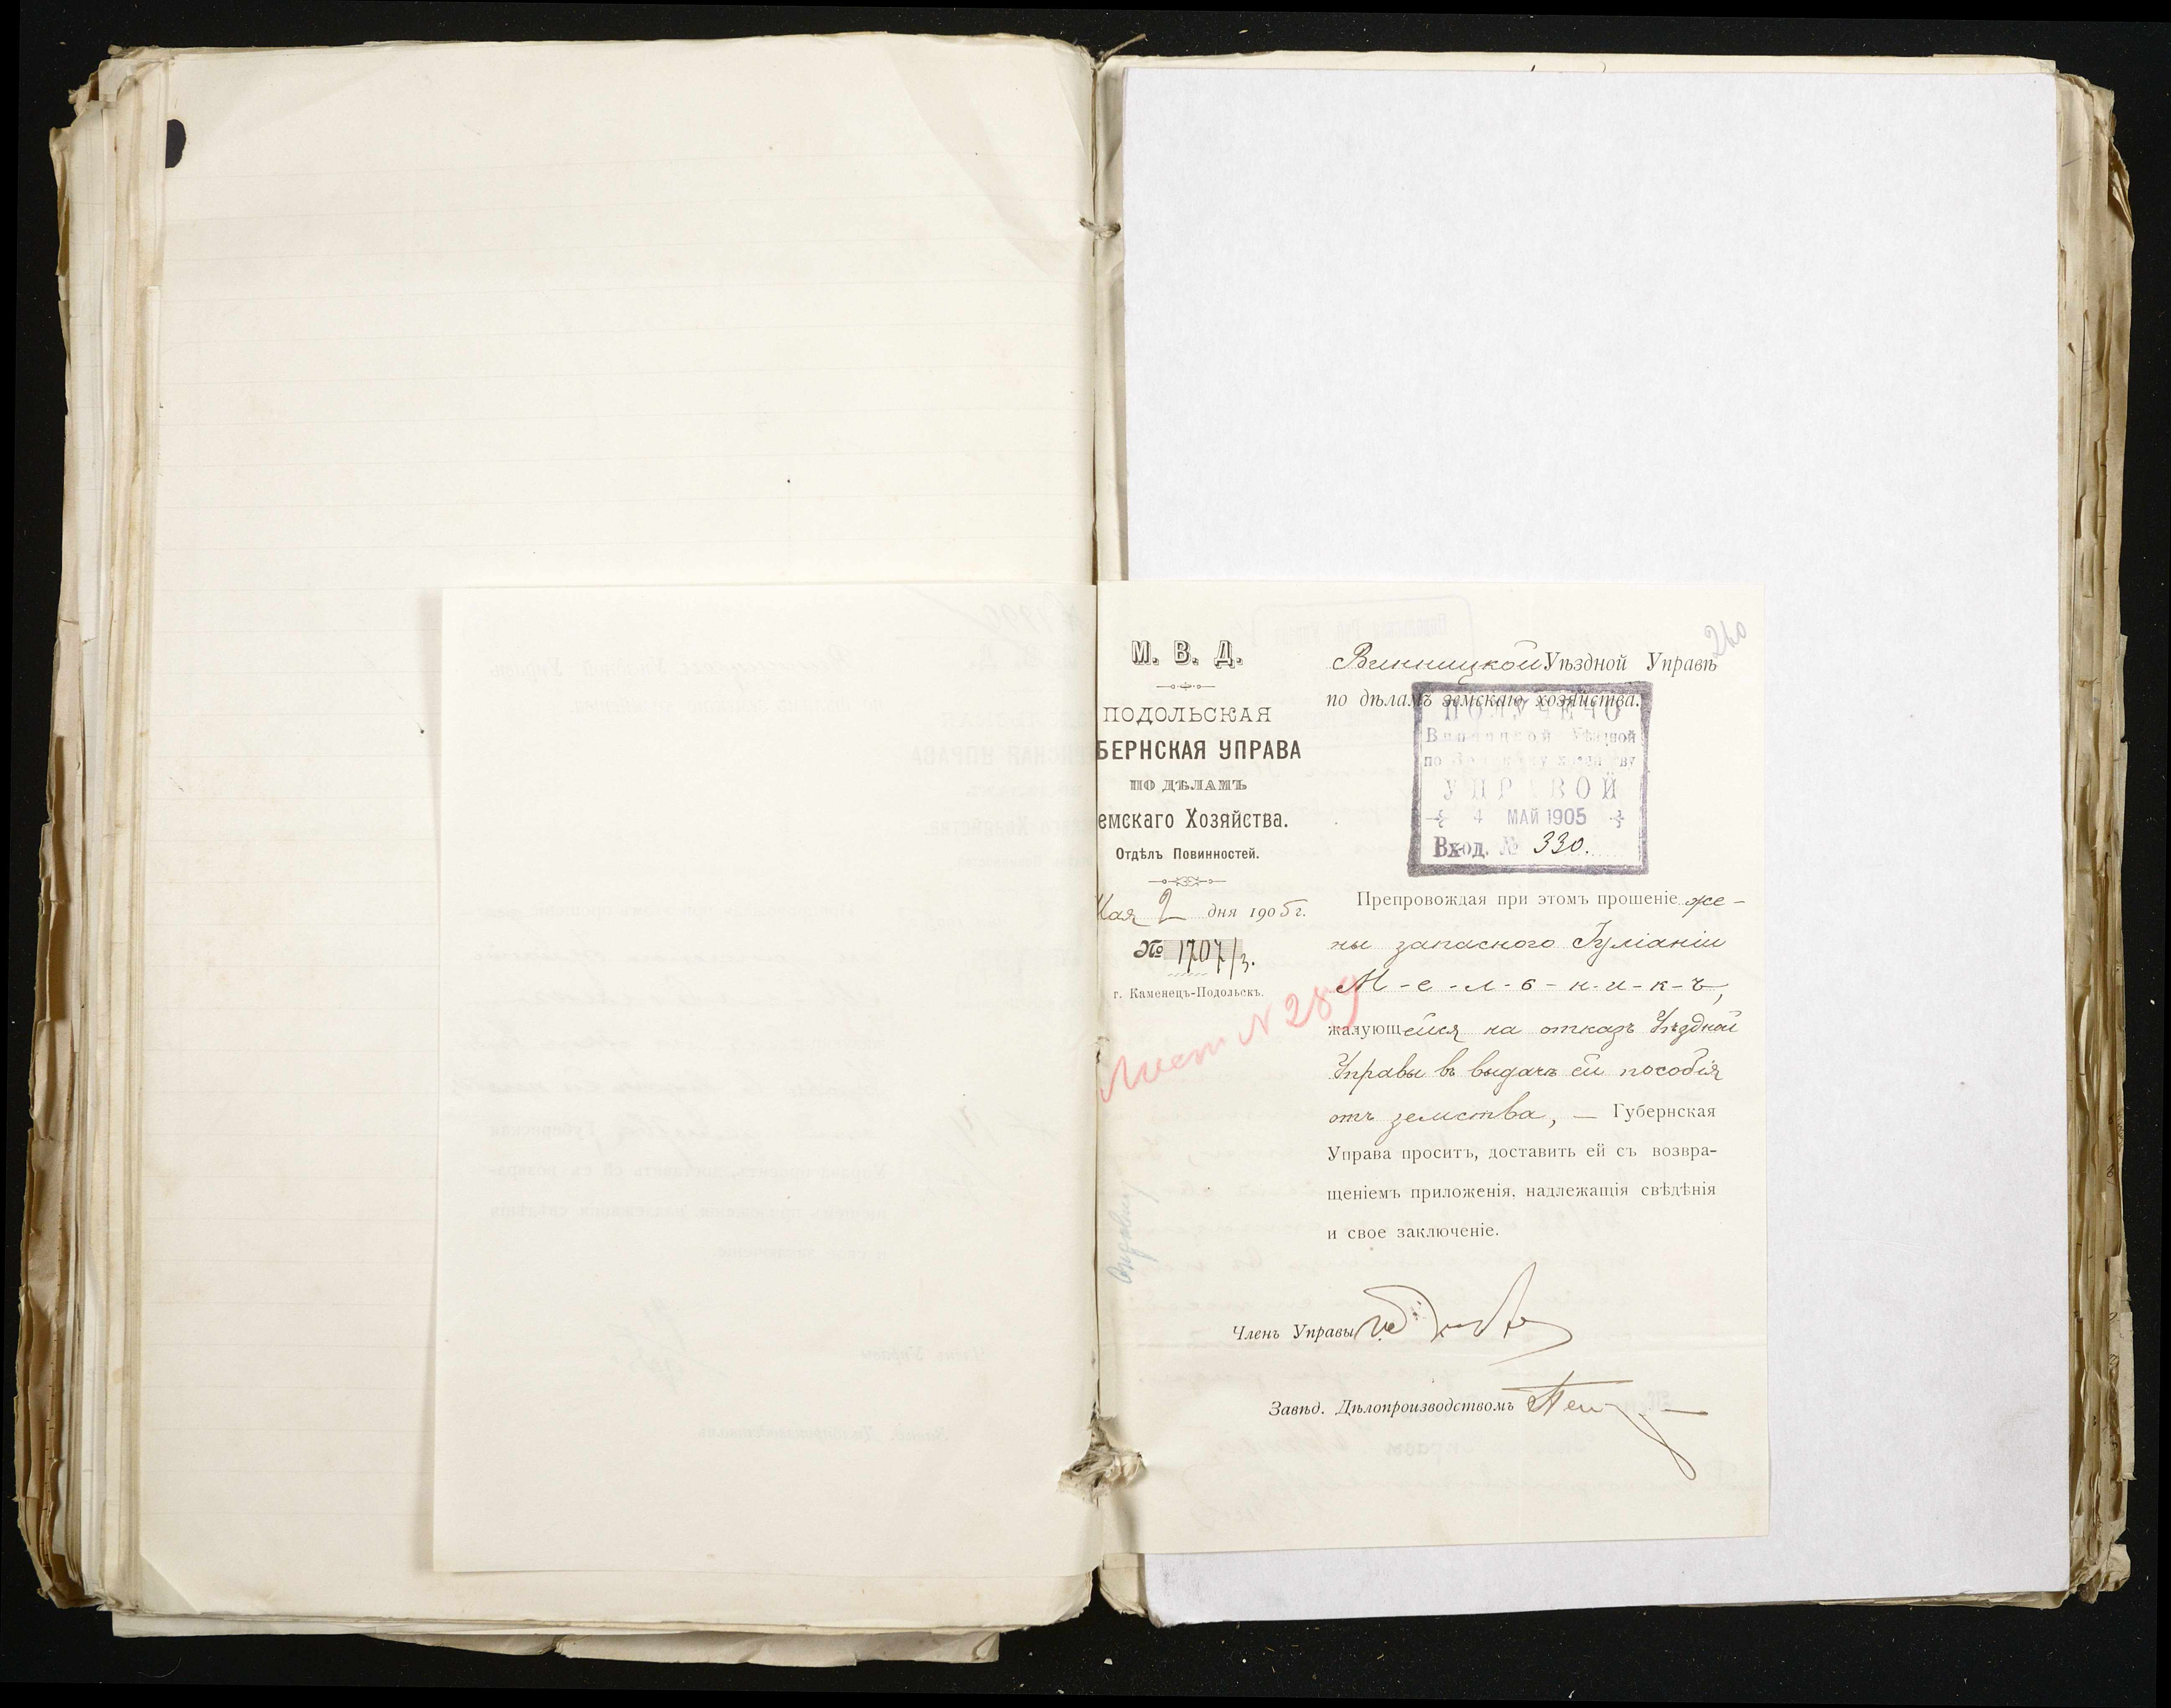 260
М. В. Д.
ПОДОЛЬСКАЯ
БЕРНСКАЯ УПРАВА
ПО ДѢЛАМЪ
емскаго Хозяйства.
Отдѣлъ Повинностей.
Мая 2 дня 1905 г.
№ 1707/3.
г. Каменецъ-Подольскъ.
Лист N 289
Винницкой Уѣздной Управѣ
по дѣламъ земскаго хозяйства.
ПОЛУЧЕНО
Винницкой Уѣздной
по Земскому хозяйству
УПРАВОЙ
4 МАЙ 1905
Вход. № 330.
Препровождая при этомъ прошеніе же-
ны запаснаго Іуліаніи
М-е-л-ь-н-и-к-ъ,
жалующейся на отказъ Уѣздной
Управы въ выдачѣ ей пособія
отъ земства, — Губернская
Управа проситъ, доставить ей съ возвра-
щеніемъ приложенія, надлежащія свѣдѣнія
и свое заключеніе.
Членъ Управы
Завѣд. Дѣлопроизводствомъ